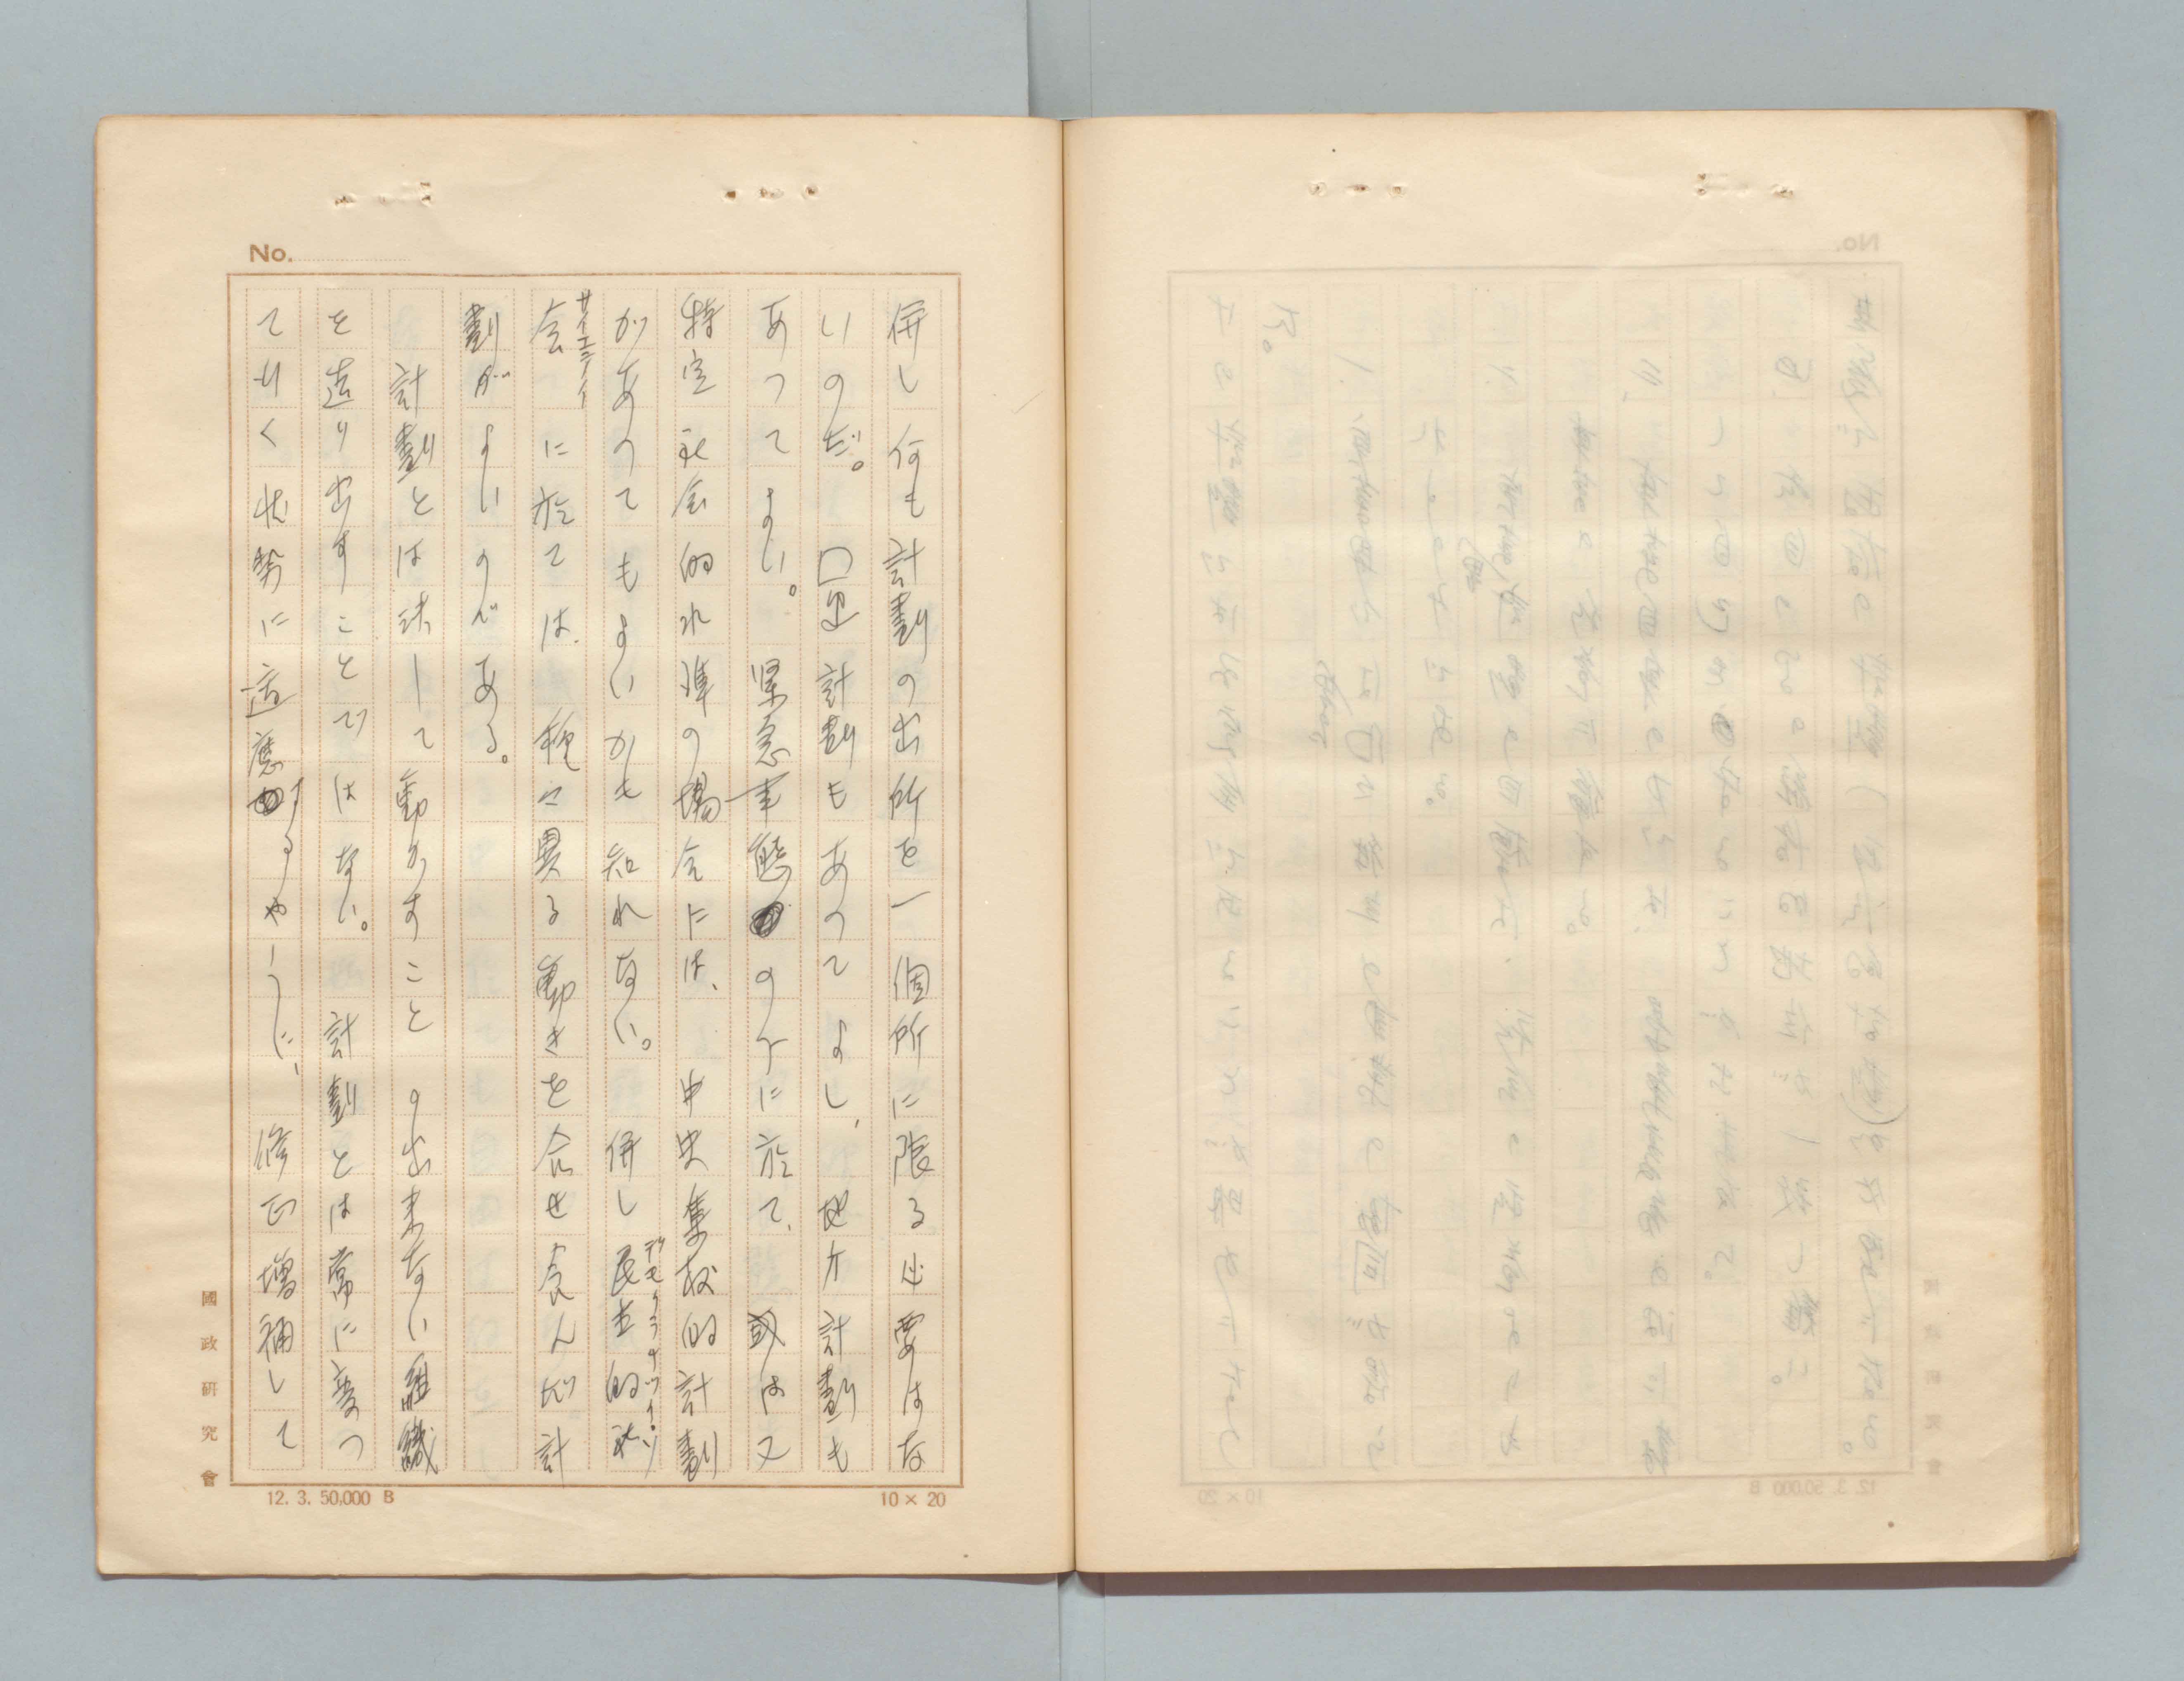 No.
併し何も計劃の出所を一個所に限る必要はな
いのだ。計劃もあつてよし、地方計劃も
あつてよい。緊急事態の下に於て、或は又
特定社会的水準の場合には、中央集权的計劃
があつてもよいかも知れない。併し民主的社
デモクラチツク・ソ
サイエテイ
会に於ては、種々異る動きを合せ含んだ計
劃がよいのである。
計劃とは決して動かすことの出来ない組織
を造り出すことではない。計劃とは常に変つ
てゆく状勢に適應するやうに、修正増補して
國政研究會
12. 3. 50,000 B
10 × 20